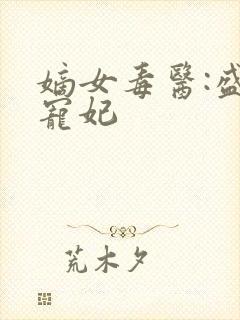 嫡女毒醫:盛
寵妃
荒木夕